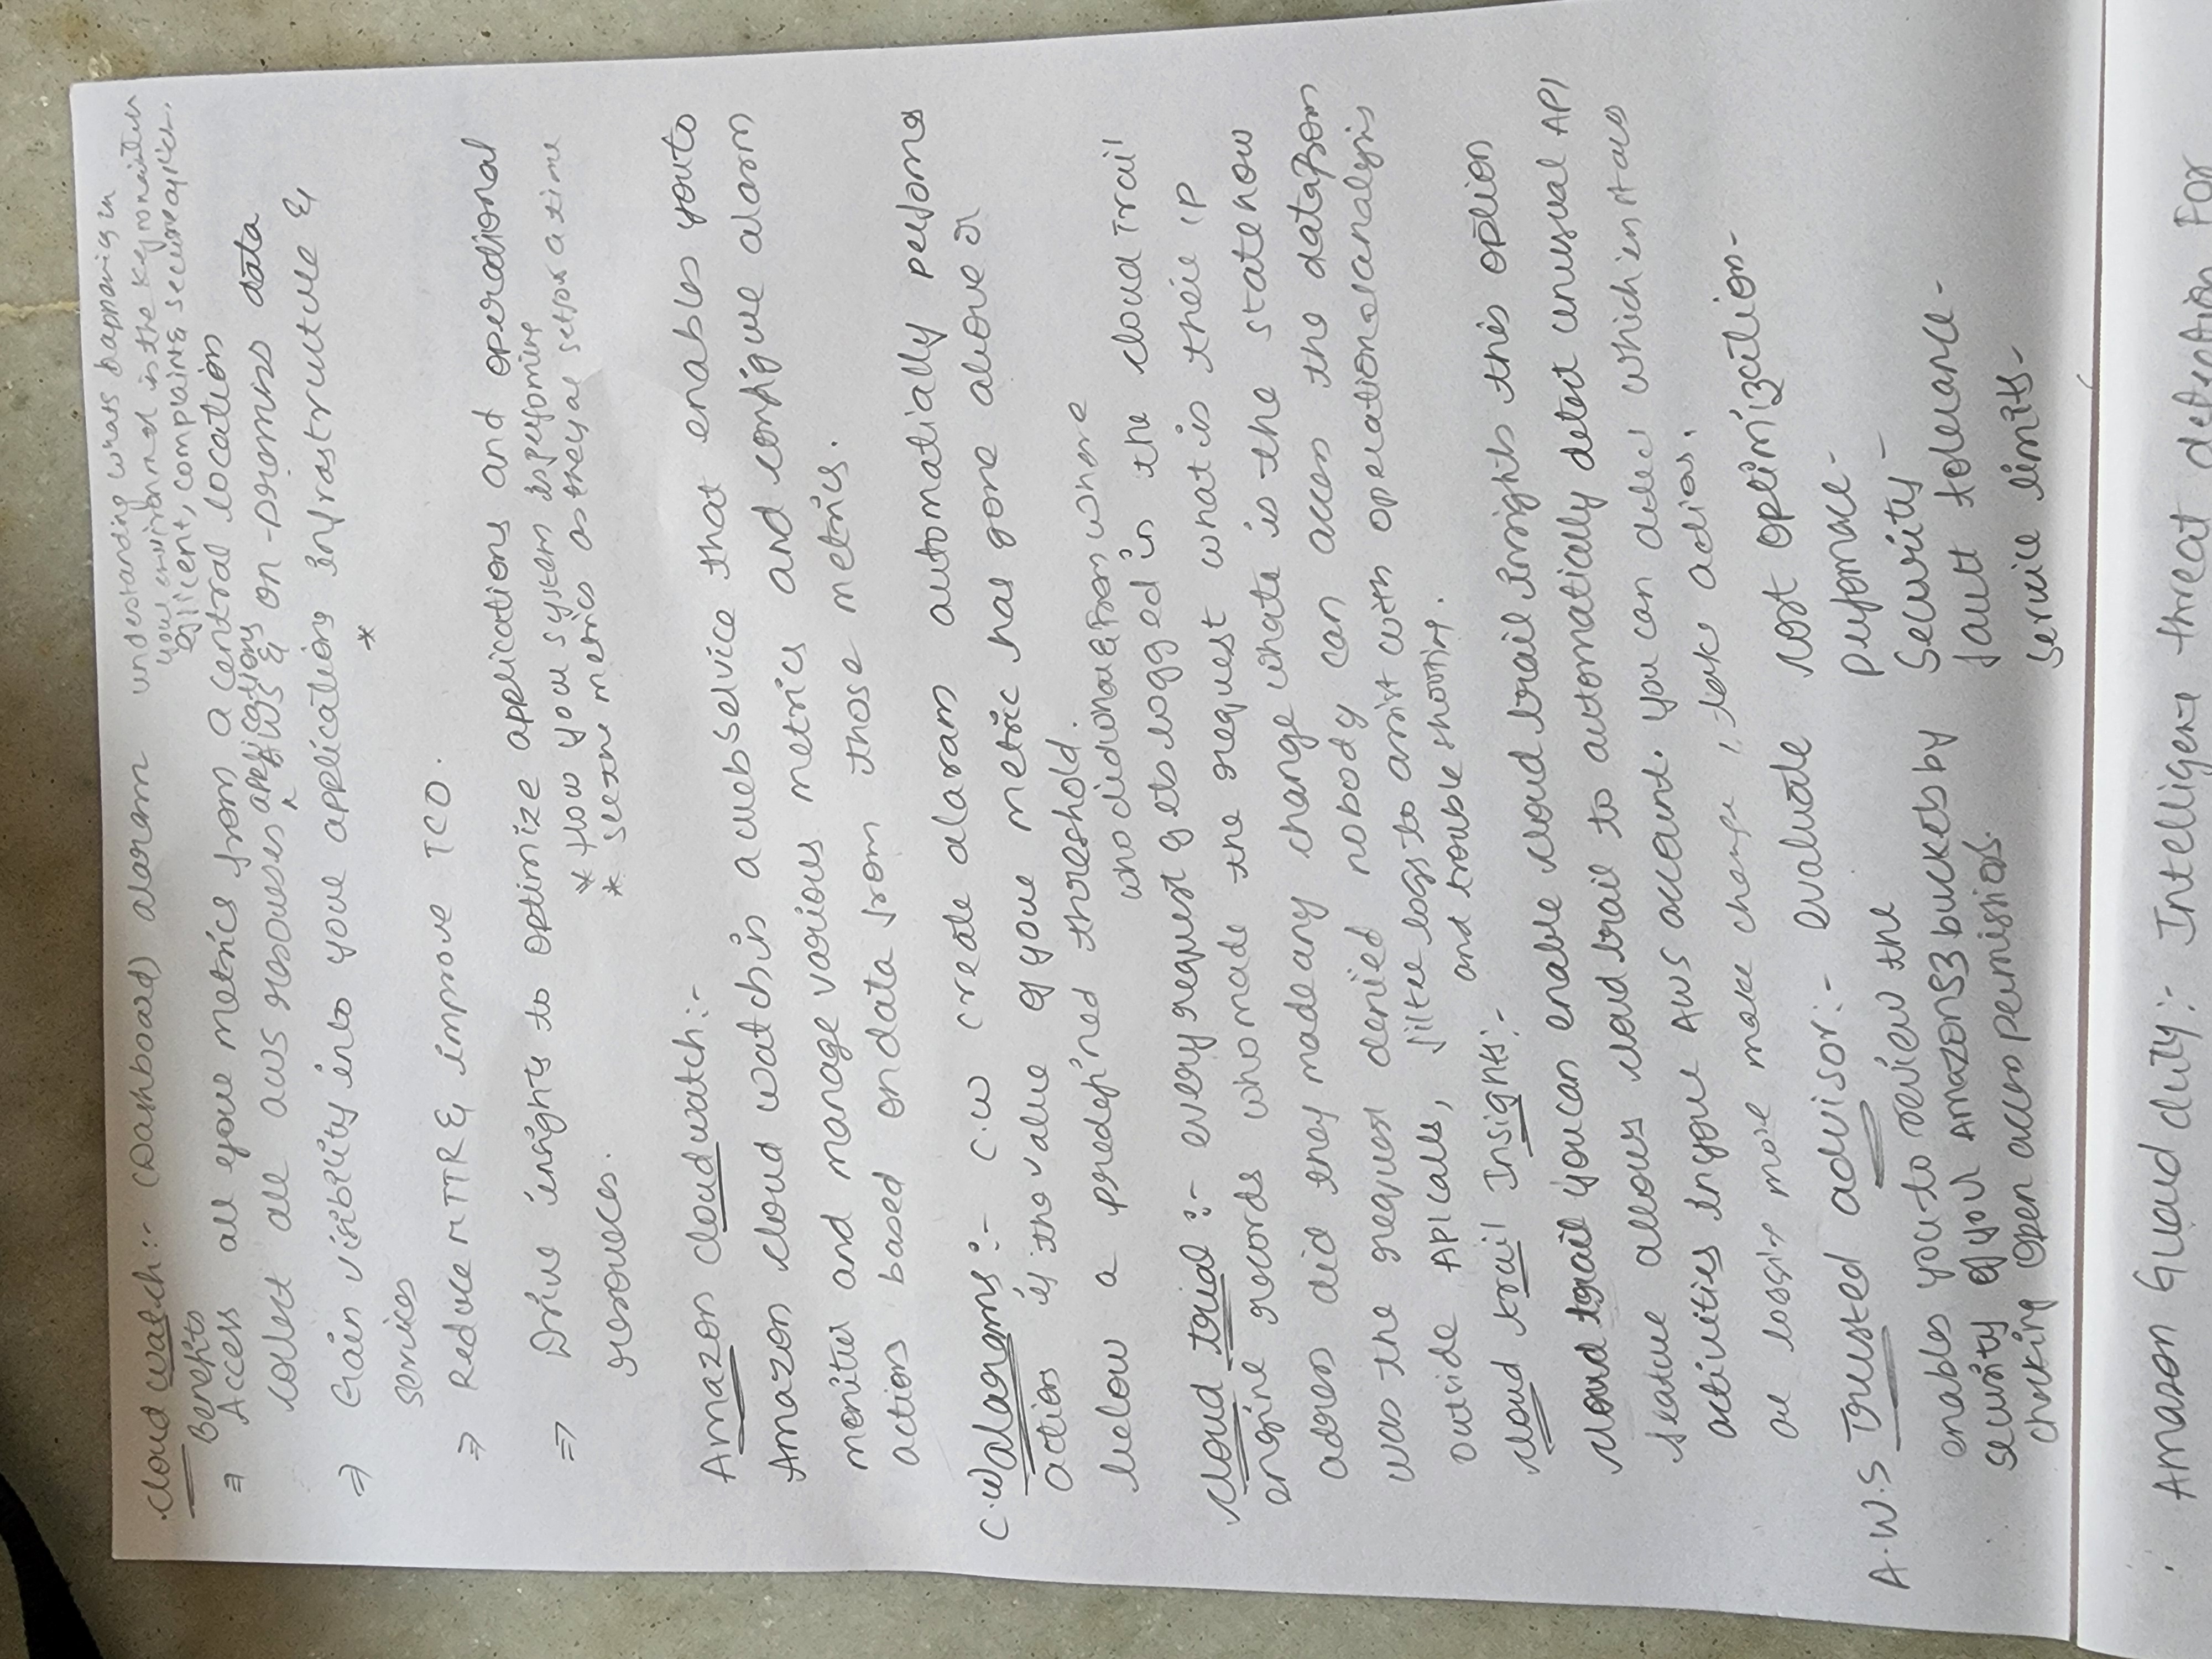 cloud watch:- (Dashboard) alaram
understanding whats happening in
your environmet is the key to maintain
efficent, complaint & secure
Benefits
⇒ Access all your metrics from a central location
collect all aws resouses applications AWS & on-premiss data
⇒ Gain visibility into your applications infrastructure &
*
services
⇒ Reduce MTTR & improve TCO.
⇒ Drive insights to optimize applications and operational
* How your system is perfoming
resoueces.
* see the metrics as they are set for a time
Amazon cloudwatch:-
Amazon cloud watch is a web service that enables you to
monitor and manage various metrics and configure alarm
actions based on data from those metrics.
C.W alarams:- C.W create alaram automatially perfoms
action if the value of your metric has gone above or
below a predefined threshold.
who did what & from where
cloud trial:- every request gets logged in the cloud Trail
engine records who made the request what is their IP
adress did they made any change whate is the state now
was the request denied nobody can access the data from
outside API calls, filter logs to assist with operational analysis
and trouble shooting.
cloud trail Insights:-
cloud trail you can enable cloud trail insights this option
feature allows cloud trail to automatically detect unusual API
activities in your AWS account. you can detect which
are more make change, take action.
A.W.S Trusted advisor:- evaluate cost optimization-
perfomace-
enables you to review the
Security-
security of your Amazon S3 buckets by
fault tolerance-
checking open access permissions.
service limits-
Amazon Guard duty:- Intelligent threat detection For